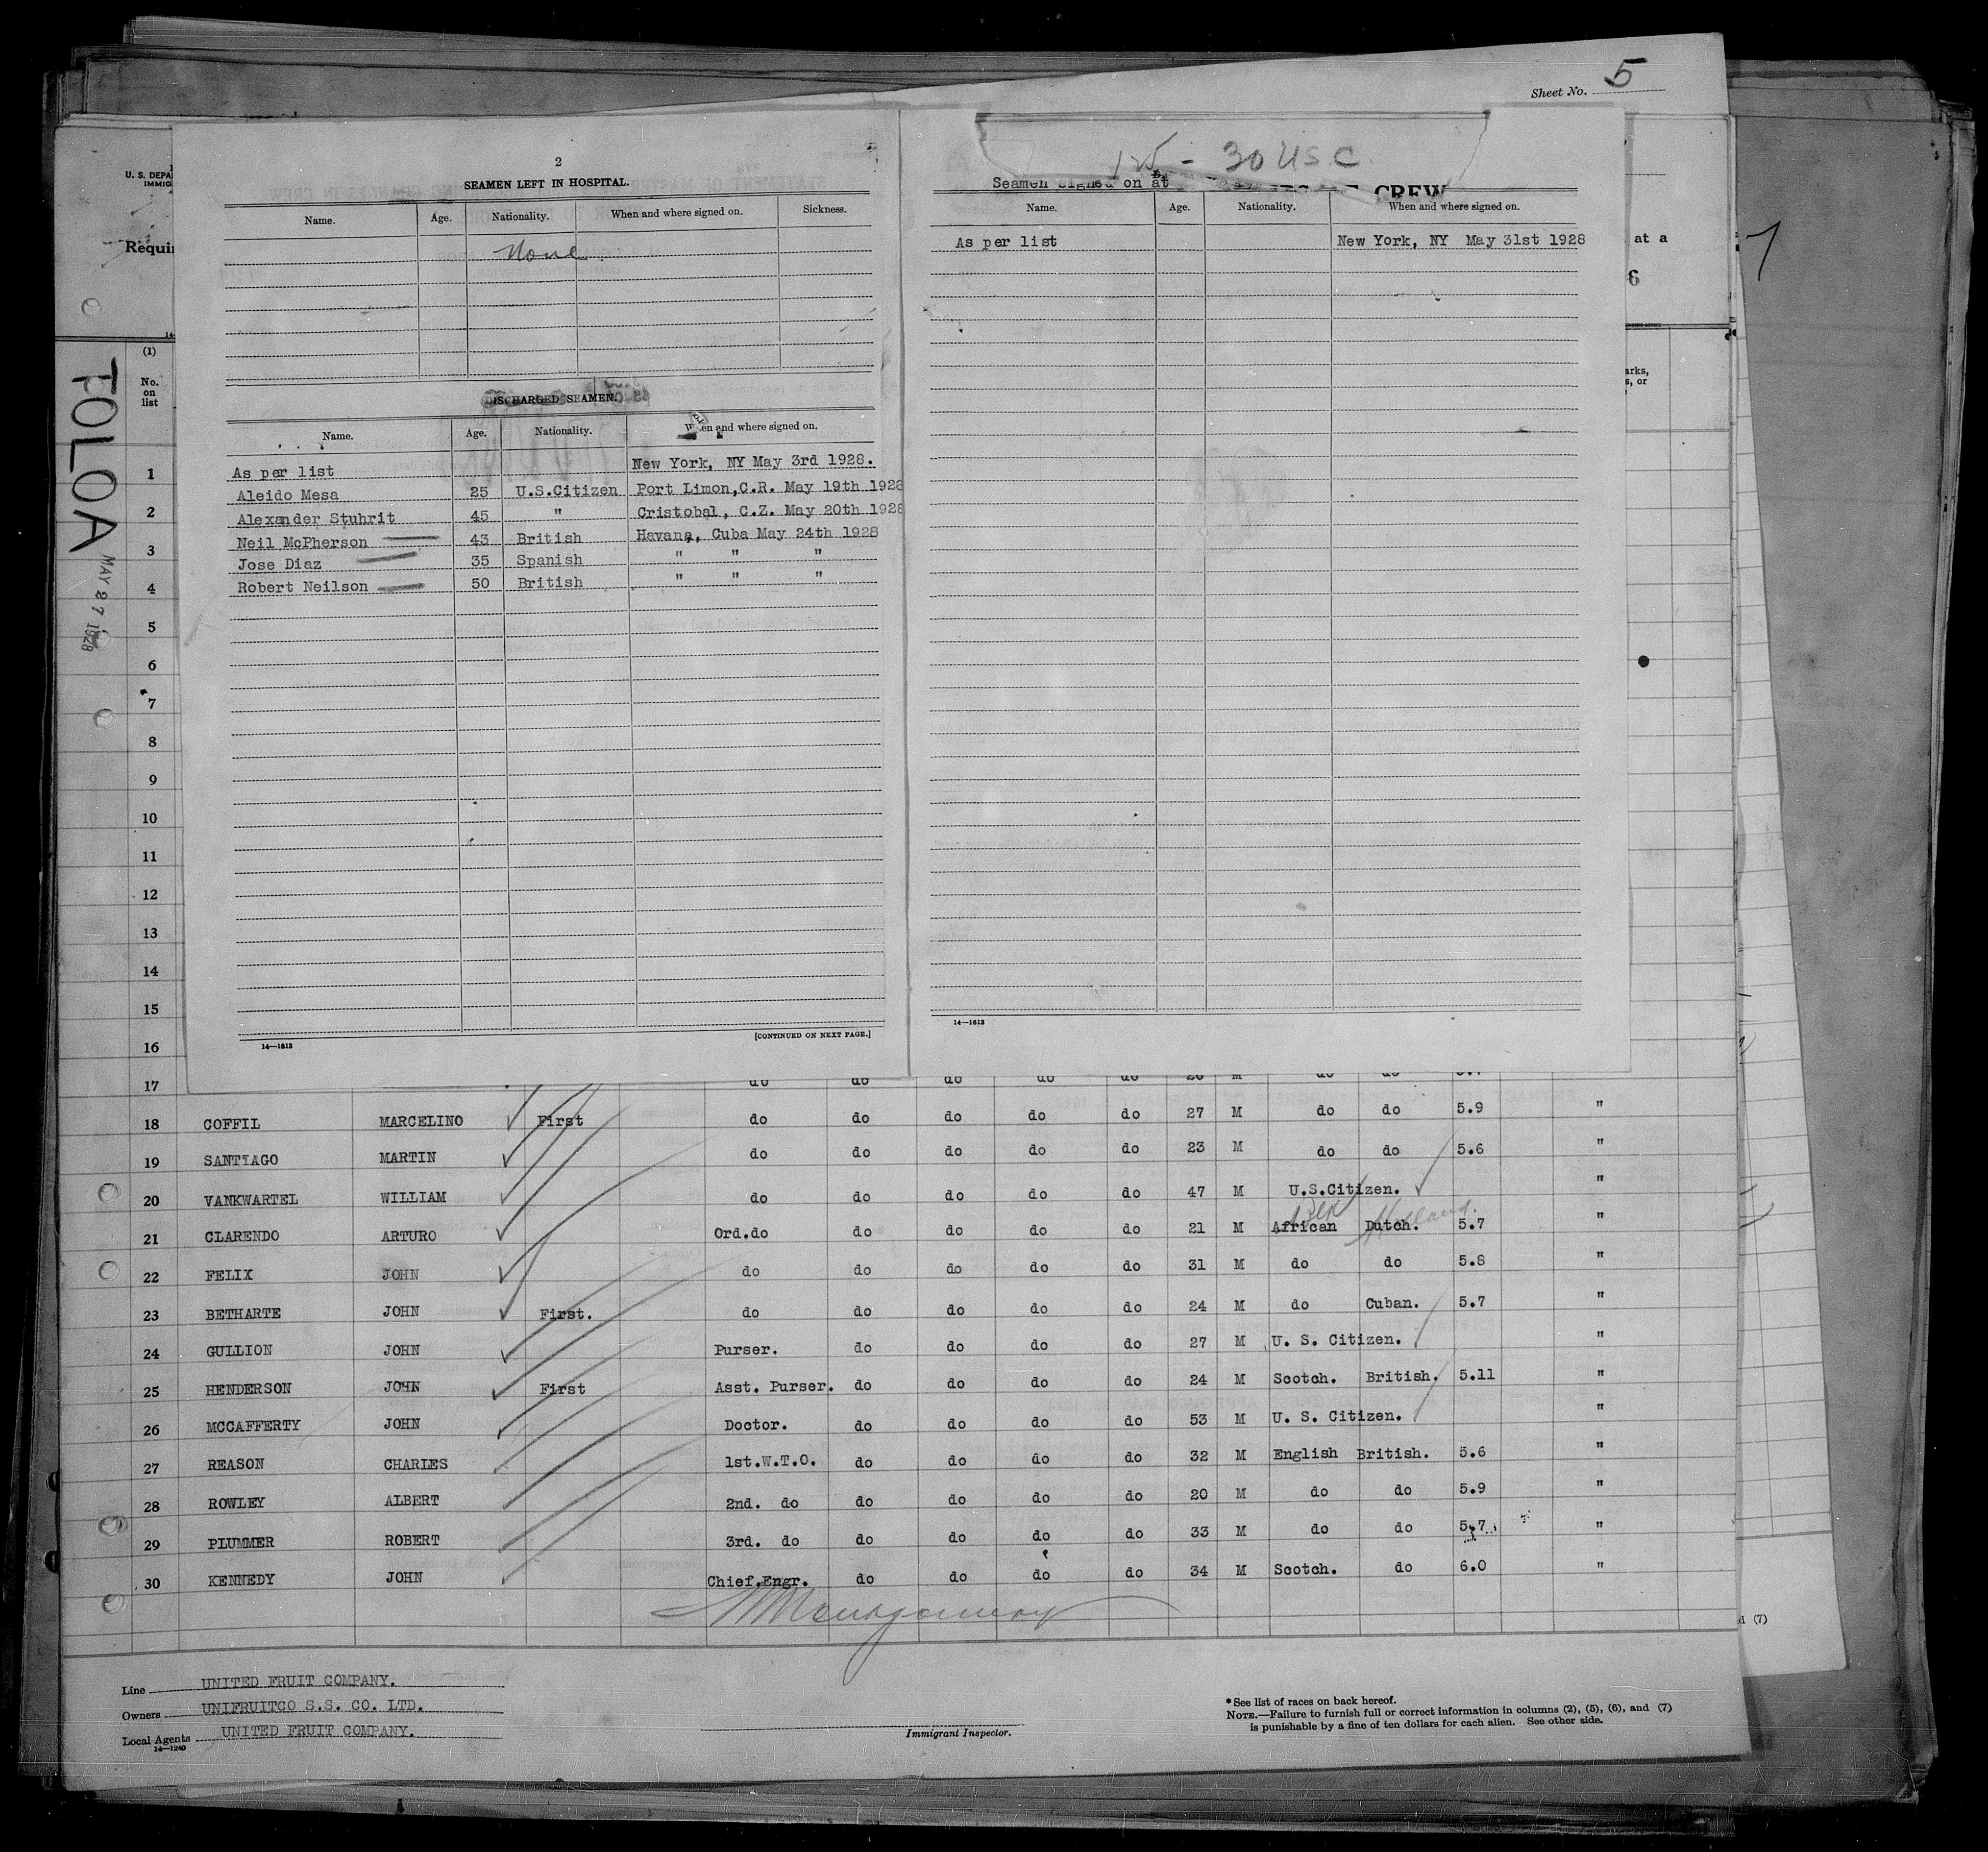 Sheet No. 5
U. S. DEPA
IMMIG
Requi
at a
6
TOLOA
MAY 27 1928
2
SEAMEN LEFT IN HOSPITAL.
Name. Age. Nationality. When and where signed on. Sickness.
None
DISCHARGED SEAMEN.
Name. Age. Nationality. When and where signed on.
As per list New York, NY May 3rd 1928.
Aleido Mesa 25 U.S.Citizen Port Limon,C.R. May 19th 1928
Alexander Stuhrit 45 " Cristobal, C.Z. May 20th 1928
Neil McPherson 43 British Havana, Cuba May 24th 1928
Jose Diaz 35 Spanish " " "
Robert Neilson 50 British " " "
14—1613
[CONTINUED ON NEXT PAGE.]
125 - 30 USC
Seamen signed on at CREW
Name. Age. Nationality. When and where signed on.
As per list New York, NY May 31st 1928
14—1613
(1)
No.
on
list
arks,
s, or
1
2
3
4
5
6
7
8
9
10
11
12
13
14
15
16
17 do do do do do M do do
18 COFFIL MARCELINO First do do do do do 27 M do do 5.9 "
19 SANTIAGO MARTIN do do do do do 23 M do do 5.6 "
20 VANKWARTEL WILLIAM do do do do do 47 M U.S.Citizen. "
21 CLARENDO ARTURO Ord.do do do do do 21 M African Dutch. 5.7 "
Holland.
22 FELIX JOHN do do do do do 31 M do do 5.8 "
23 BETHARTE JOHN First. do do do do do 24 M do Cuban. 5.7 "
24 GULLION JOHN Purser. do do do do 27 M U. S. Citizen. "
25 HENDERSON JOHN First Asst. Purser. do do do do 24 M Scotch. British. 5.11 "
26 MCCAFFERTY JOHN Doctor. do do do do 53 M U. S. Citizen. "
27 REASON CHARLES 1st.W.T.O. do do do do 32 M English British. 5.6 "
28 ROWLEY ALBERT 2nd. do do do do do 20 M do do 5.9 "
29 PLUMMER ROBERT 3rd. do do do do do 33 M do do 5.7 "
30 KENNEDY JOHN Chief.Engr. do do do do 34 M Scotch. do 6.0 "
Montgomery
d (7)
Line UNITED FRUIT COMPANY.
Owners UNIFRUITCO S.S. CO. LTD.
Local Agents UNITED FRUIT COMPANY.
14—1240
Immigrant Inspector.
* See list of races on back hereof.
NOTE.—Failure to furnish full or correct information in columns (2), (5), (6), and (7)
is punishable by a fine of ten dollars for each alien. See other side.